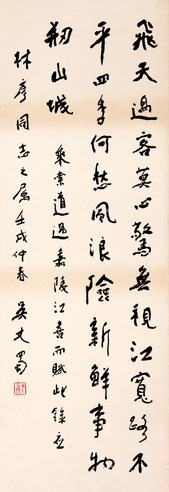 飛天過客莫心驚無視江寬路不
平四季何愁風浪險新鮮事物
勒山城 乘索道過嘉陵江喜而賦此錄应
林彥同志之屬壬戌仲春 吴丈蜀